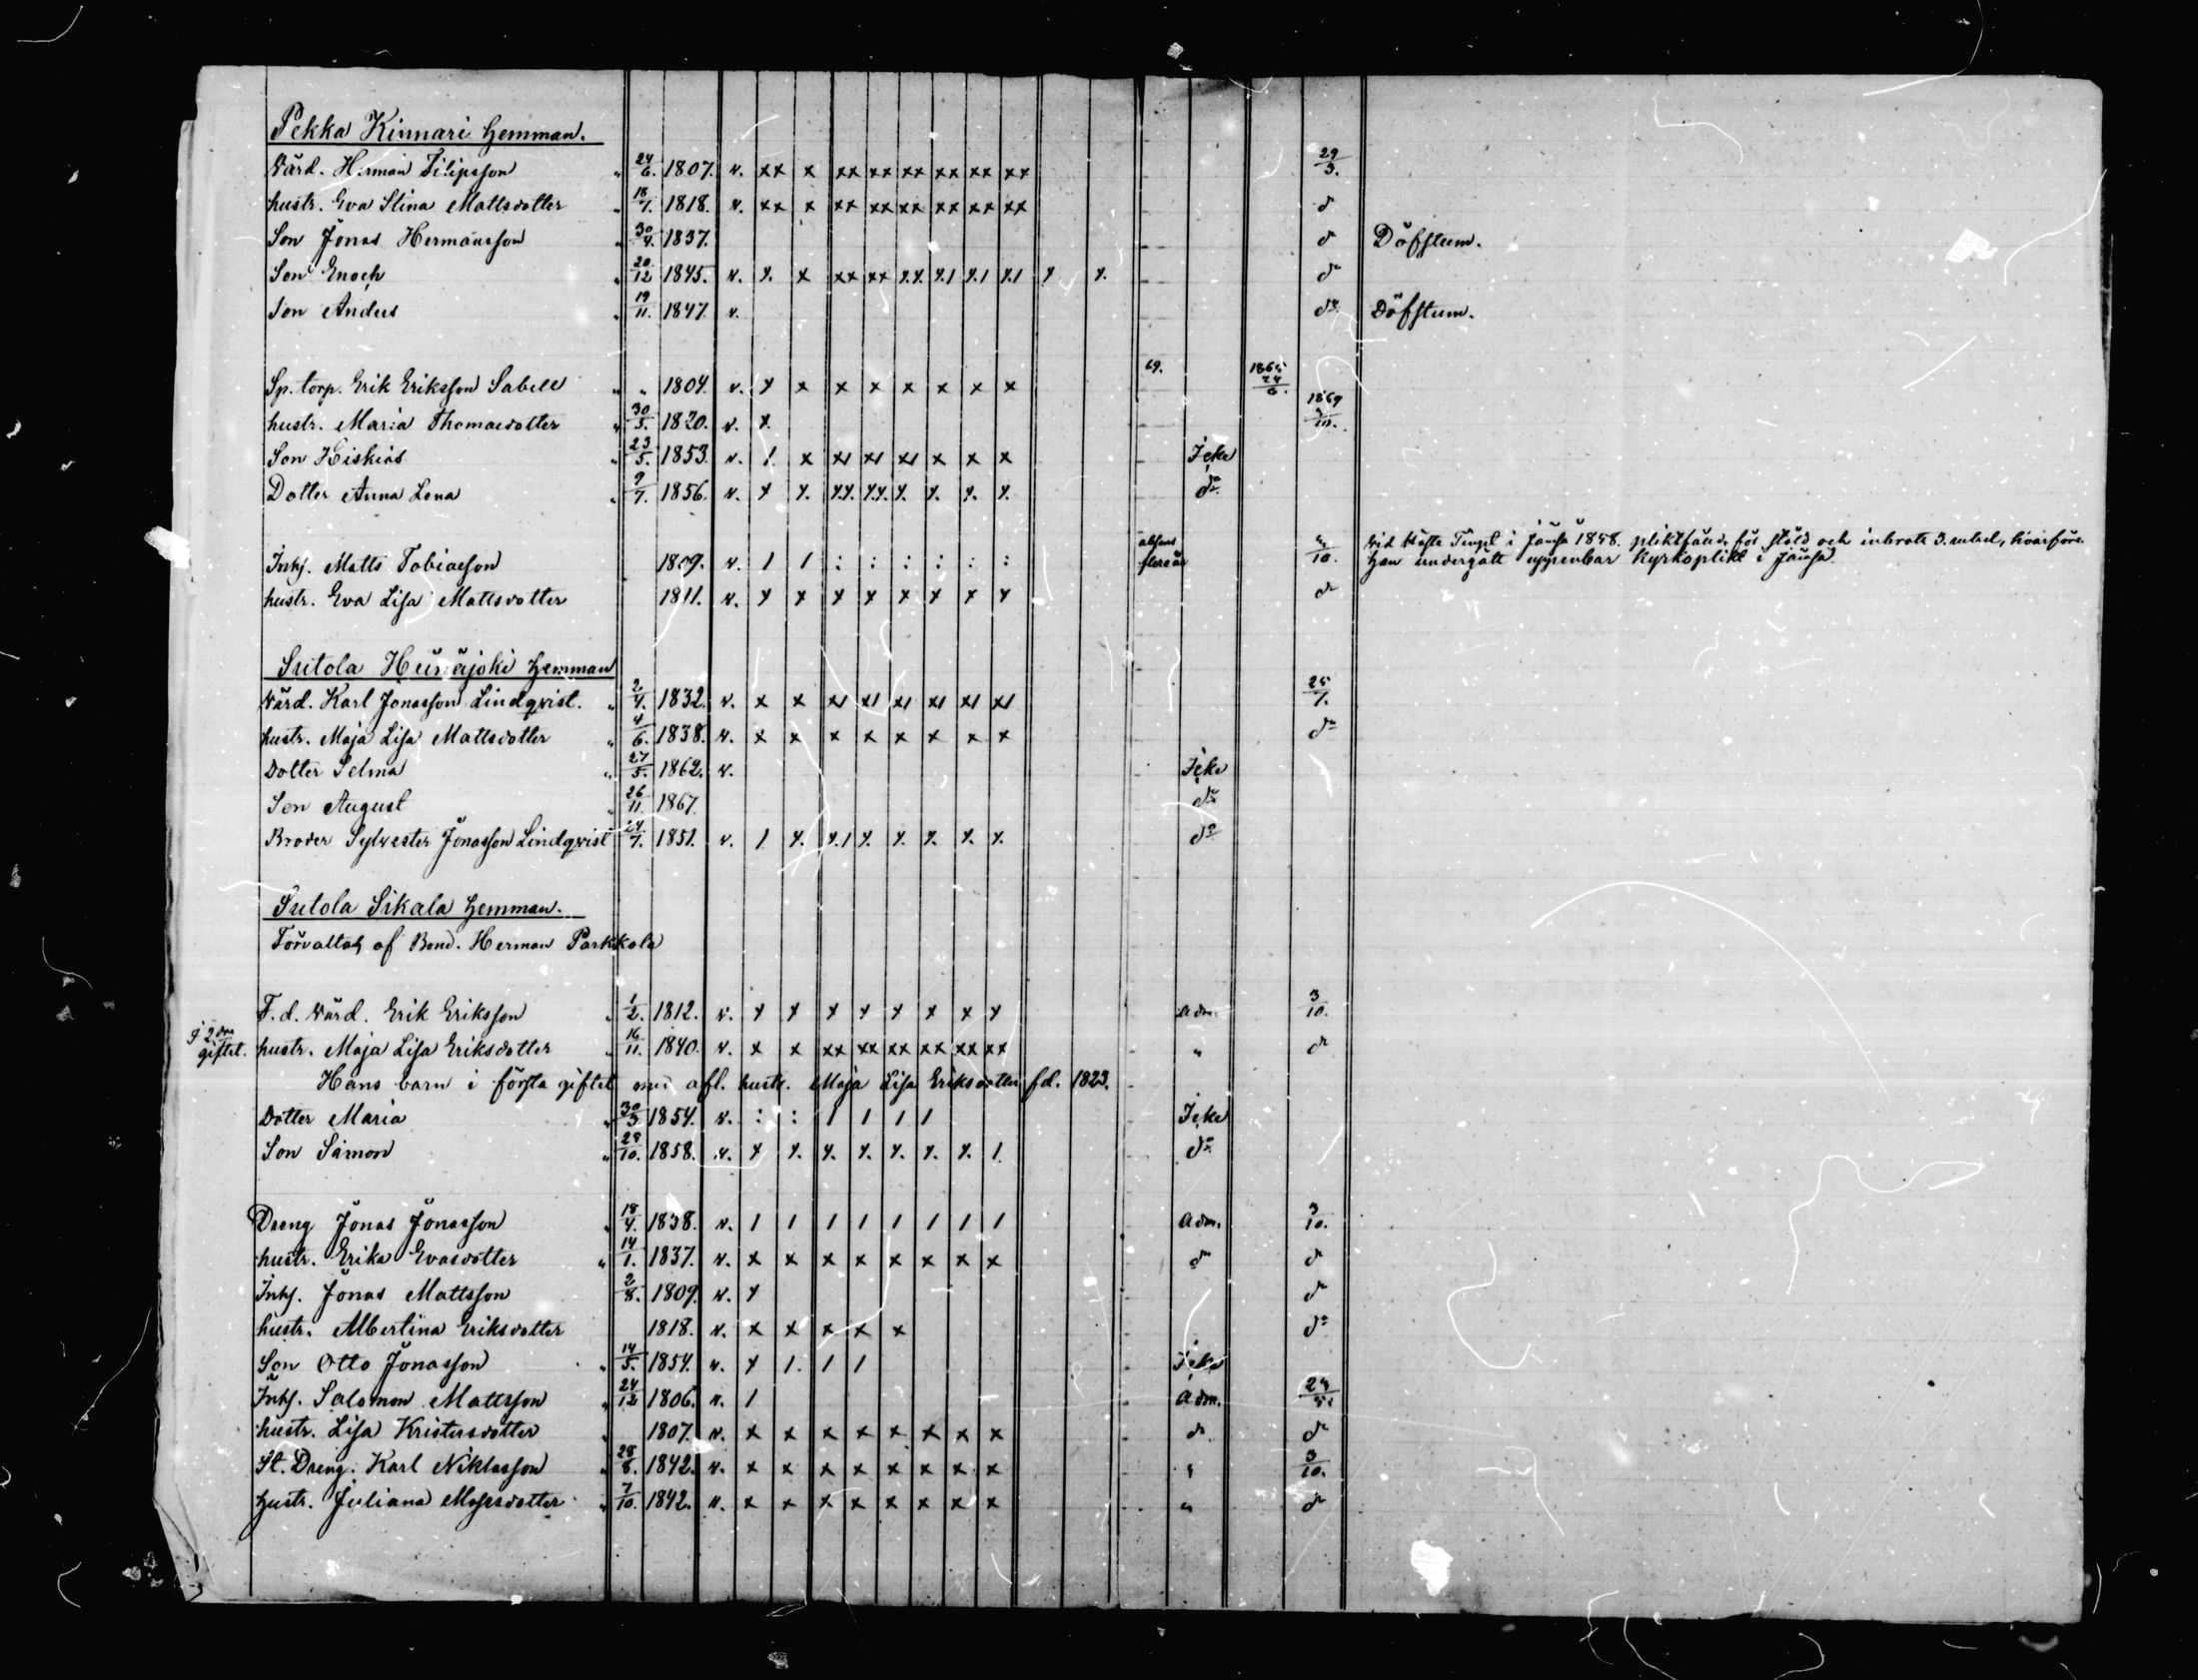 Pekka Kinnari Hemman.
Värd. Herman Filipsson " 24/6. 1807. v. xx x xx xx xx xx xx xx 29/3.
hustr. Eva Stina Mattsdotter " 18/7. 1818. v. xx x xx xx xx xx xx xx d
Son Jonas Hermansson " 30/4. 1837. d Döfstum.
Son Enoch " 20/12 1845. v. x x xx xx d
Son Anders " 19/11. 1847. v. do Döfstum.
Sp. torp. Erik Eriksson Sabell " " 1804. v. x x x x x x x x 69. 1865 24/6.
hustr. Maria Thomasdotter " 30/5. 1820. v. 1869 /10.
Son Hiskias " 23/5. 1853. v. 1 x x x x x x x Icke
Dotter Anna Lena " 9/7. 1856. v. do
Inhs. Matts Tobiasson 1809. v. 1 1 : : : : : : flere år /10. Vid Höste Tinget i 1858. för stöld och inbrott
han undergått uppenbar kyrkoplikt i
hustr. Eva Lisa Mattsdotter 1811. v. x x x x x x x x do
Sutola Heinäjoki Hemman
Värd. Karl Jonasson Lindqvist. " 2/4. 1832. v. x x 25/7.
hustr. Maja Lisa Mattsdotter " 4/6. 1838. v. x x x x x x x x do
Dotter Selma " 27/5. 1862. v. Icke
Son August " 26/11. 1867. do
Broder Sylvester Jonasson Lindqvist 24/7. 1851. v. do
Sutola Sikala Hemman.
Förvaltas af Bond. Herman Parkkola
F. d. Värd. Erik Eriksson " 1/2. 1812. v. x x x x x x x x Adm. 3/10.
I 2dra
giftet. hustr. Maja Lisa Eriksdotter " 16/11. 1840. v. x x xx xx xx xx xx xx " do
Hans barn i första giftet med afl. hustr. Maja Lisa Eriksdotter fd. 1823.
Dotter Maria " 30/3 1854. v. : : 1 1 1 1 Icke
Son Simon " 28/10. 1858. v. do
Dreng Jonas Jonasson " 18/4. 1838. v. 1 1 1 1 1 1 1 1 Adm. 3/10.
hustr. Erika Evasdotter " 14/1. 1837. v. x x x x x x x x d d
Inhs. Jonas Mattsson 2/8. 1809. v. x d
hustr. Albertina Eriksdotter 1818. v. x x x x x do
Son Otto Jonasson " 14/5. 1854. v. x 1. 1 1 Icke
Inhs. Salomon Mattsson " 24/12 1806. v. 1 Adm.
hustr. Lisa Kristersdotter " 1807. v. x x x x x x x x do do
St. Dreng. Karl Niklasson " 28/8. 1842. v. x x x x x x x x " 3/10.
hustr. Juliana Mosesdotter " 7/10. 1842. v. x x x x x x x x " do